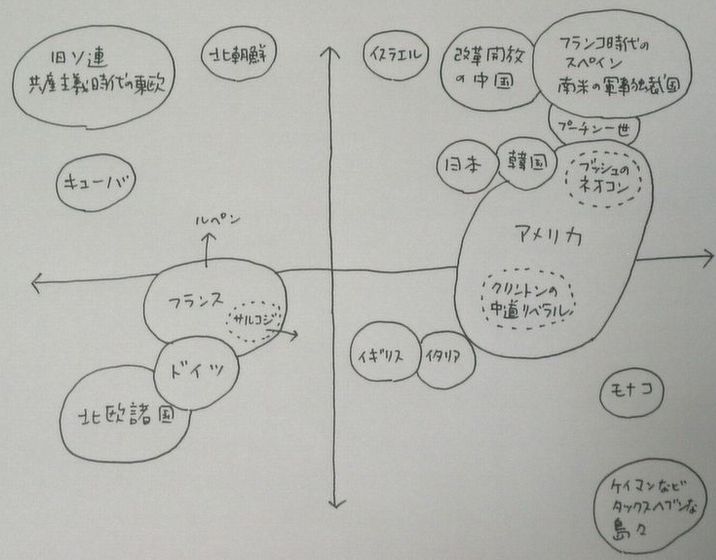 旧ソ連
共産主義時代の東欧
北朝鮮
イスラエル
改革開放
の中国
フランコ時代の
スペイン
南米の軍事独裁国
プーチン一世
キューバ
日本
韓国
ブッシュの
ネオコン
アメリカ
クリントンの
中道リベラル
ルペン
フランス
サルコジ
ドイツ
北欧諸国
イギリス
イタリア
モナコ
ケイマンなど
タックスヘブンな
島々